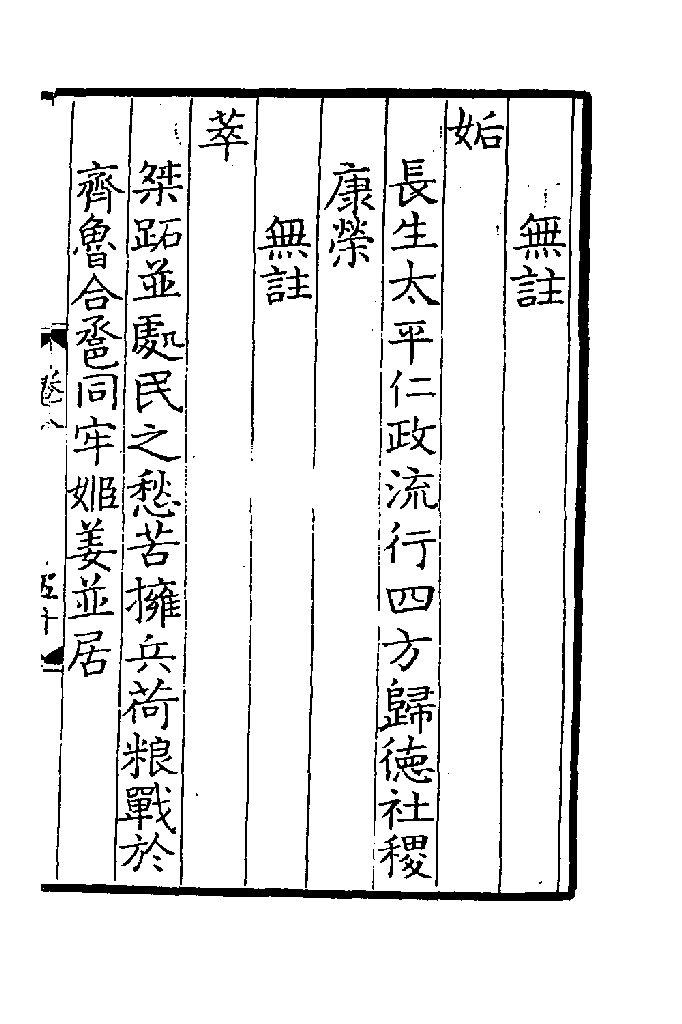 無註
姤
長生太平仁政流行四方歸徳社稷
康榮
無註
萃
桀跖並處民之愁苦擁兵荷粮戰於
齊魯合卺同牢姬姜並居